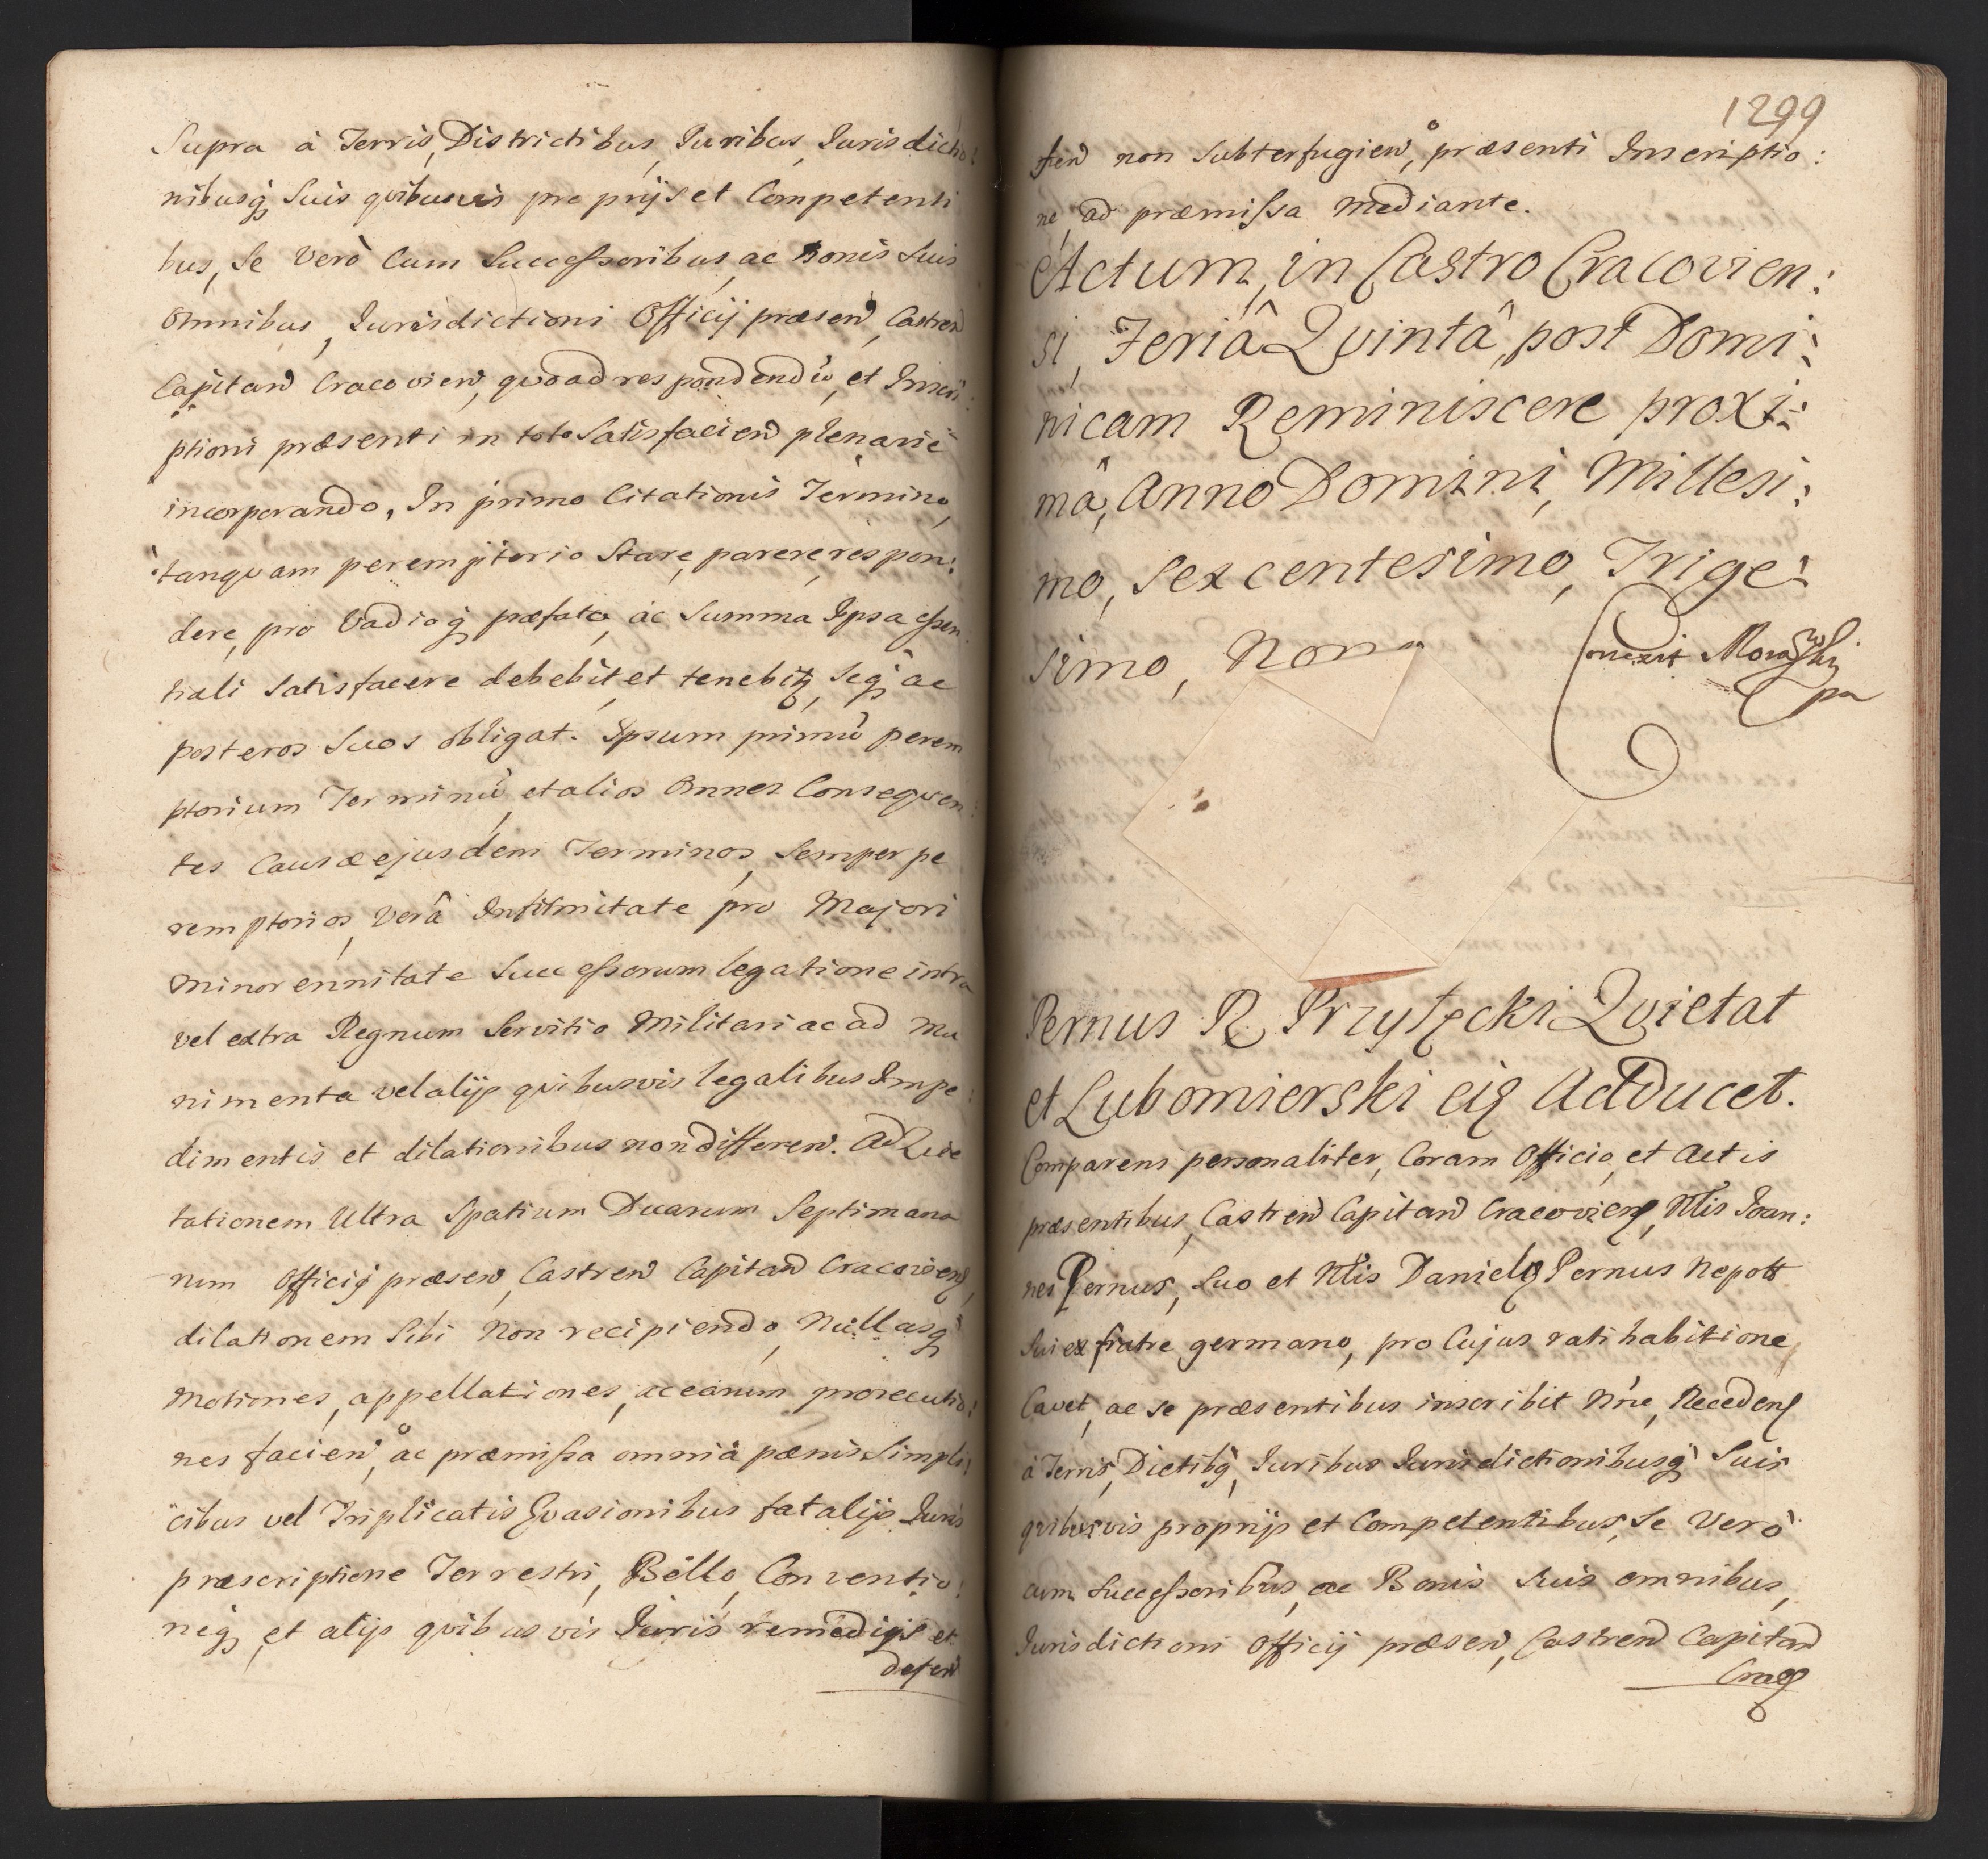 Supra à Terris, Districtibus, Juribus, Jurisdictio:
nibusq; Suis qvibusvis proprijs et Competenti
bus, Se Verò Cum Successoribus, ac Bonis Suis
Omnibus, Jurisdictioni Officij præsen, Castren
Capitan Cracovien, qvoad respondendū, et Inscri:
ptioni præsenti in toto Satisfacien plenariè
incorporando, In primo Citationis Termino,
tanqvam peremptorio Stare, parere, respon:
dere, pro Vadioq; præfato, ac Summa Ipsa essen:
tiali Satisfacere debebit, et tenebitz, Seq; ac
posteros Suos obligat. Ipsum primū perem
ptorium Terminū, et alios Omnes Conseqven:
tes Causæ ejusdem Terminos, Semper pe
remptorios, Verâ Infirmitate pro Majori
Minorennitate Successorum legatione intra
vel extra Regnum Servitio Militari ac ad Mu
nimenta vel alijs qvibusvis legalibus Impe:
dimentis et dilationibus non differen. Ad Qvie
tationem Ultra Spatium Duarum Septimana
rum Officij præsen, Castren Capitan Cracovien,
dilationem Sibi Non recipiendo, Nullasq;
Motiones, appellationes, ac earum prosecutio:
nes facien, ac præmissa omnia pænis Simpli:
cibus vel Triplicatis Evasionibus fatalijs Juris
præscriptione Terrestri, Bello, Conventio:
neq; et alijs qvibusvis Juris remedijs et
defen
sien non Subterfugien, præsenti Inscriptio:
ne, ad præmissa mediante.
1299
Actum, in Castro Cracovien:
si, Feriâ Qvintâ, post Domi:
nicam Reminiscere proxi:
mâ, Anno Domini, Millesi:
mo, Sexcentesimo, Trige:
simo, Nono
Correxit
Pernus R. Przyłęcki Qvietat
et Lubomierski eiq Adducet.
Comparens personaliter, Coram Officio, et Actis
præsentibus, Castren Capitan Cracovien, Nlis Joan:
nes Pernus, Suo et Nlis Danielis Pernus Nepott
Sui ex fratre germano, pro Cujus ratihabitione
Cavet, ac se præsentibus inscribit Nne, Receden
à Terris, Dictibq, Juribus Jurisdictionibusq; Suis
qvibusvis proprijs et Competentibus, Se Verò
cum Successoribus, ac Bonis Suis omnibus,
Jurisdictioni Officij præsen, Castren Capitan
Crac